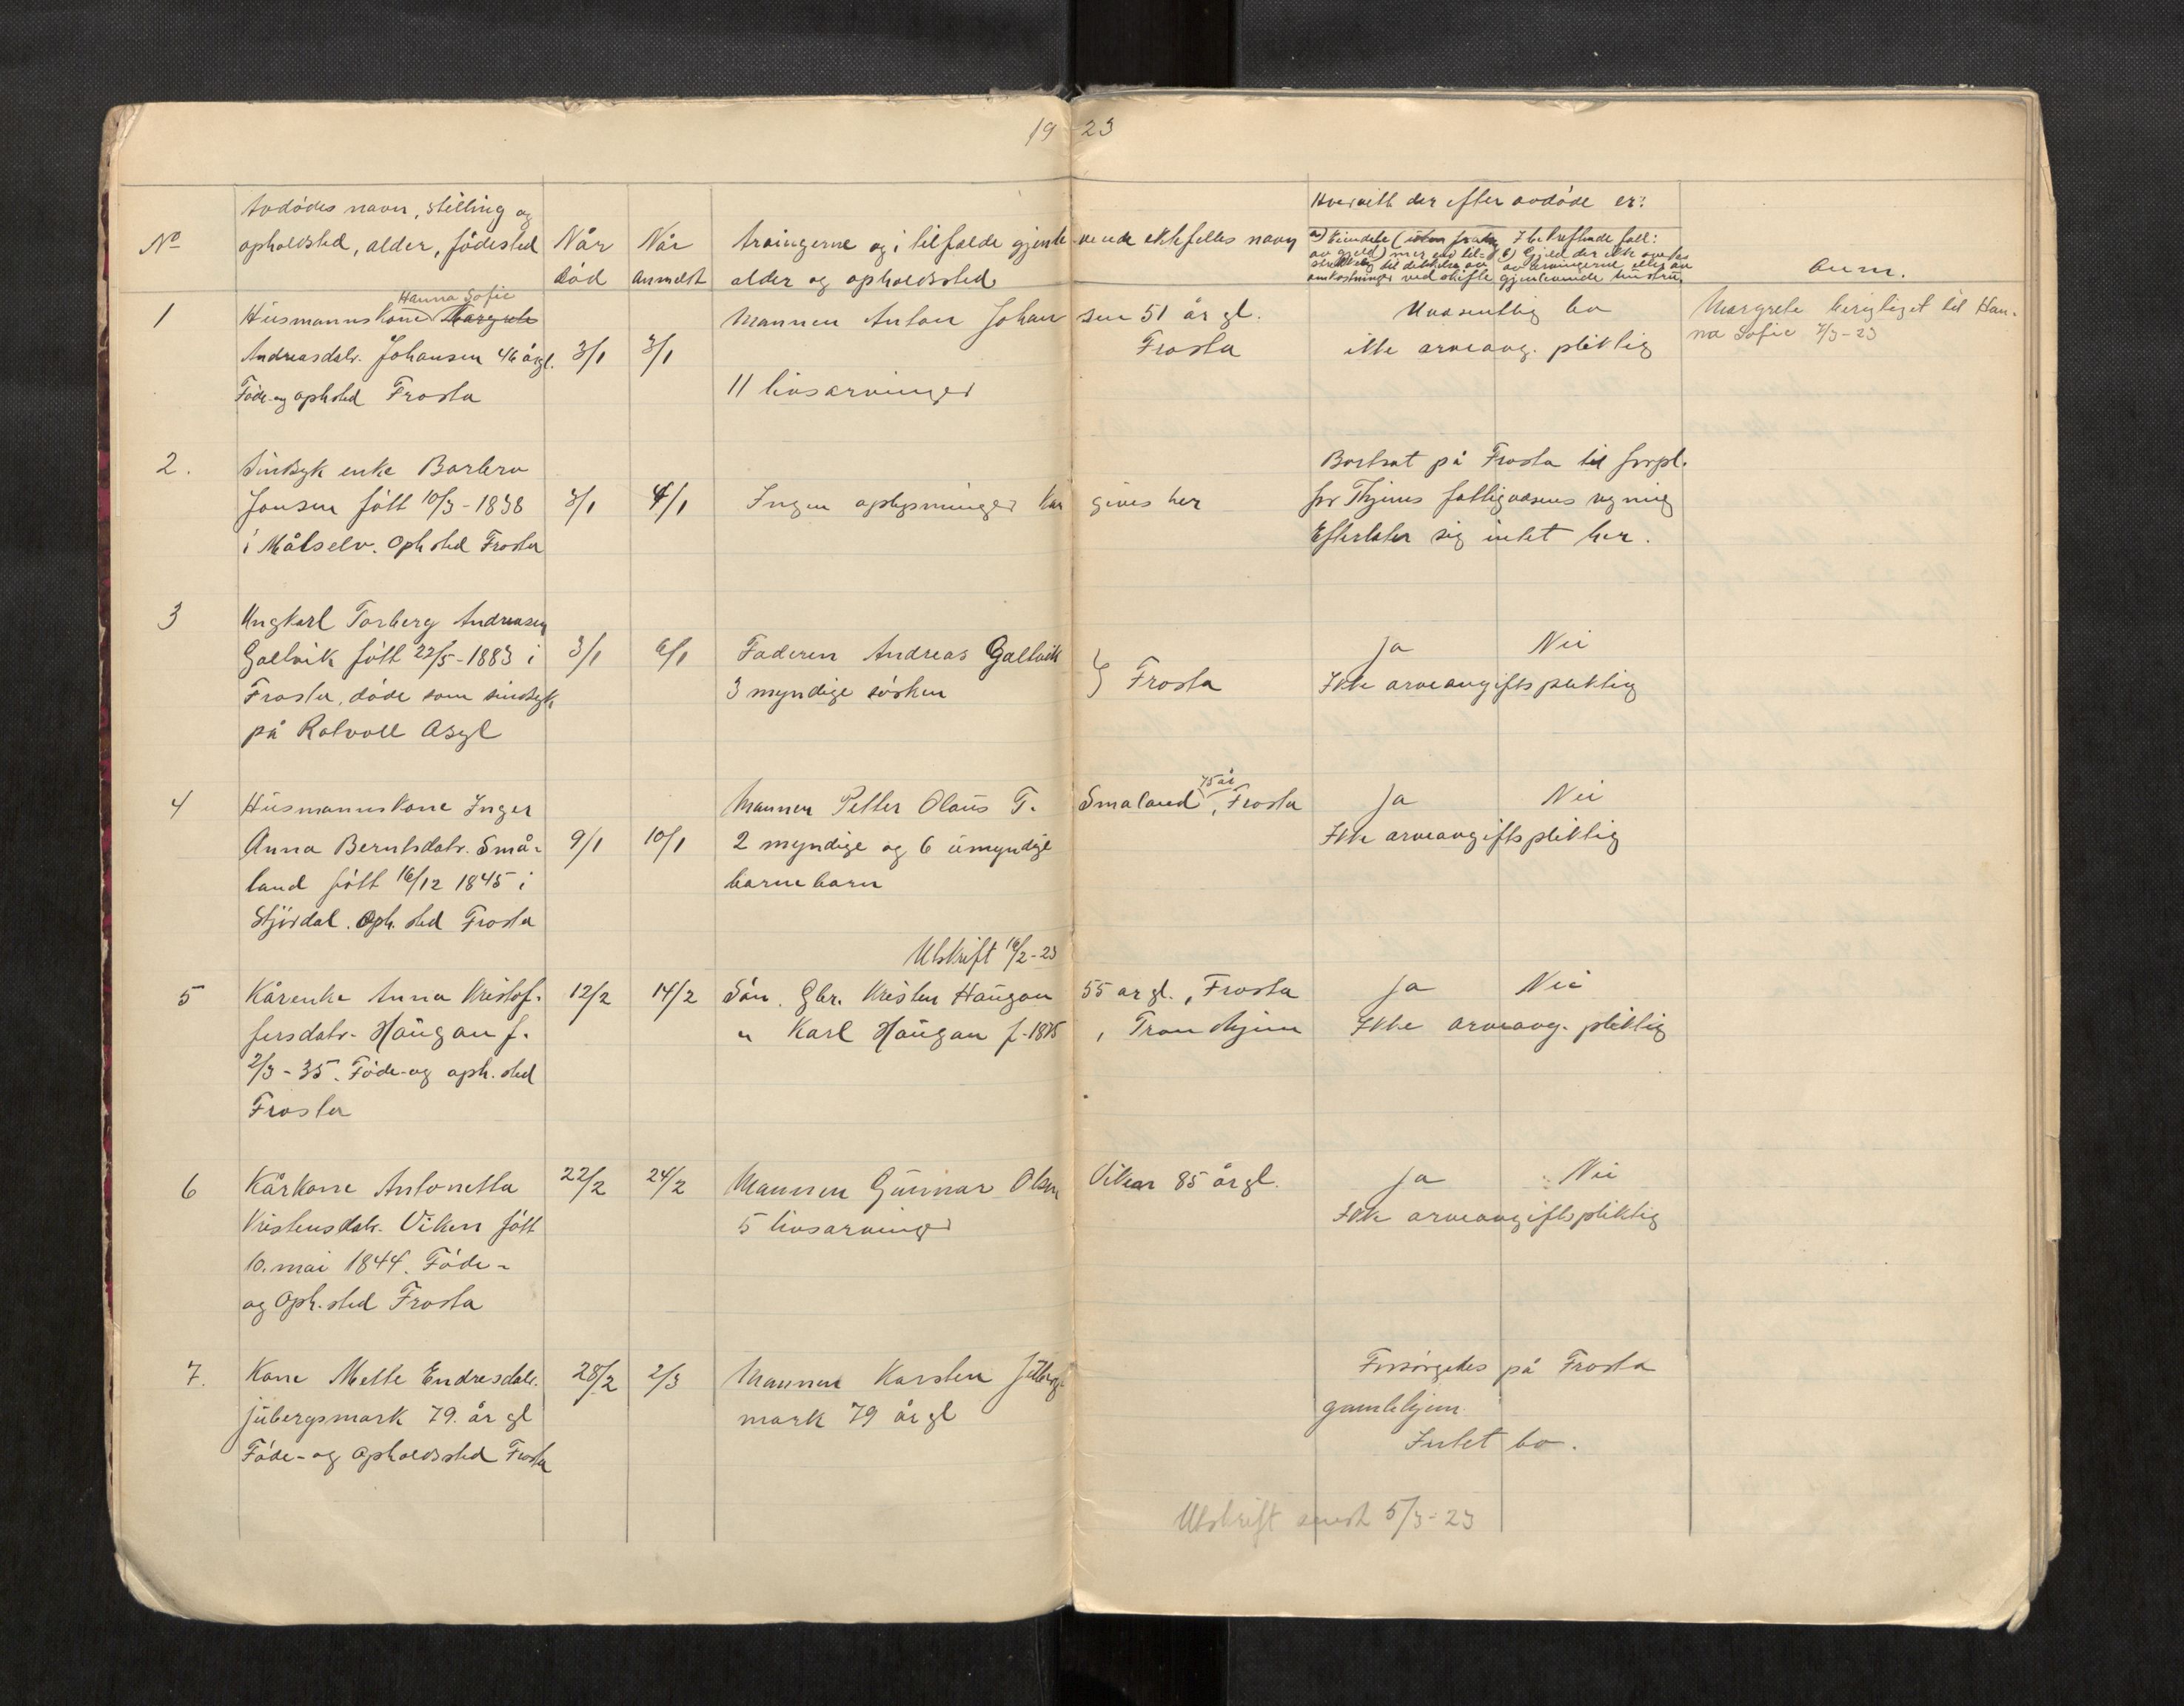 19 23
Avdødes navn, stilling og
opholdsted, alder, fødested
No
Når
død
Når
anmeldt
Arvingerne og i tilfælde gjenle-
vende ektefelles navn
alder og opholdssted
Hvorvidt der efter avdøde er:
a) Eiendele (uten fradrag
av gjeld) mer end til-
strekkelig til dekkelse av
omkostninger ved skifte
I bekreftende fall:
b) Gjeld der ikke overtas
av arvingerne eller av
gjenlevende hustru.
Anm.
1
Husmannskone Hanna Sofie Margrete
Andreasdatr. Johansen 46 år gl.
Føde- og oph sted Frosta
3/1
3/1
Mannen Anton Johansen 51 år gl.
Frosta
11 livsarvinger
Uvæsentlig bo
ikke arveavg. pliktig
Margrete berigtiget til Han-
na Sofie 7/3-23
2.
Sindsyk enke Barbro
Jonsen født 10/3-1838
i Målselv. Oph sted Frosta
3/1
4/1
Ingen oplysninger kan gives her
Bortsat på Frosta til forpl.
for Thjems fattigvæsens regning
Efterlater sig intet her.
3
Ungkarl Torberg Andreasen
Galtvik født 22/5-1883 i
Frosta, døde som sindsyk
på Rotvoll Asyl
3/1
6/1
Faderen Andreas Galtvik
3 myndige søsken
} Frosta
Ja Nei
Ikke arveavgiftspliktig
4
Husmannskone Inger
Anna Berntsdatr. Små-
land født 16/12 1845 i
Stjørdal. Oph. sted Frosta
9/1
10/1
Mannen Petter Olaus T. Småland 75 år, Frosta
2 myndige og 6 umyndige
barnebarn
Ja Nei
Ikke arveavgiftspliktig
Utskrift 16/2-23
5
Kårenke Anna Kristof-
fersdatr. Haugan f.
2/3-35. Føde- og oph. sted
Frosta
12/2
14/2
Søn. Gbr. Kristen Haugan 55 år gl., Frosta
" Karl Haugan f. 1875, Trondhjem
Ja Nei
Ikke arveavg. pliktig
6
Kårkone Antonetta
Kristensdatr. Viken født
10. mai 1844. Føde-
og Oph. sted Frosta
22/2
24/2
Mannen Gunnar Olsen Viken 85 år gl.
5 livsarvinger
Ja Nei
Ikke arveavgiftspliktig
7.
Kone Mette Endresdatr.
Jubergsmark 79. år gl
Føde- og Opholdssted Frosta
28/2
2/3
Mannen Karsten Jubergs
mark 79 år gl
Forsørgedes på Frosta
gamlehjem.
Intet bo.
Utskrift sendt 5/3-23